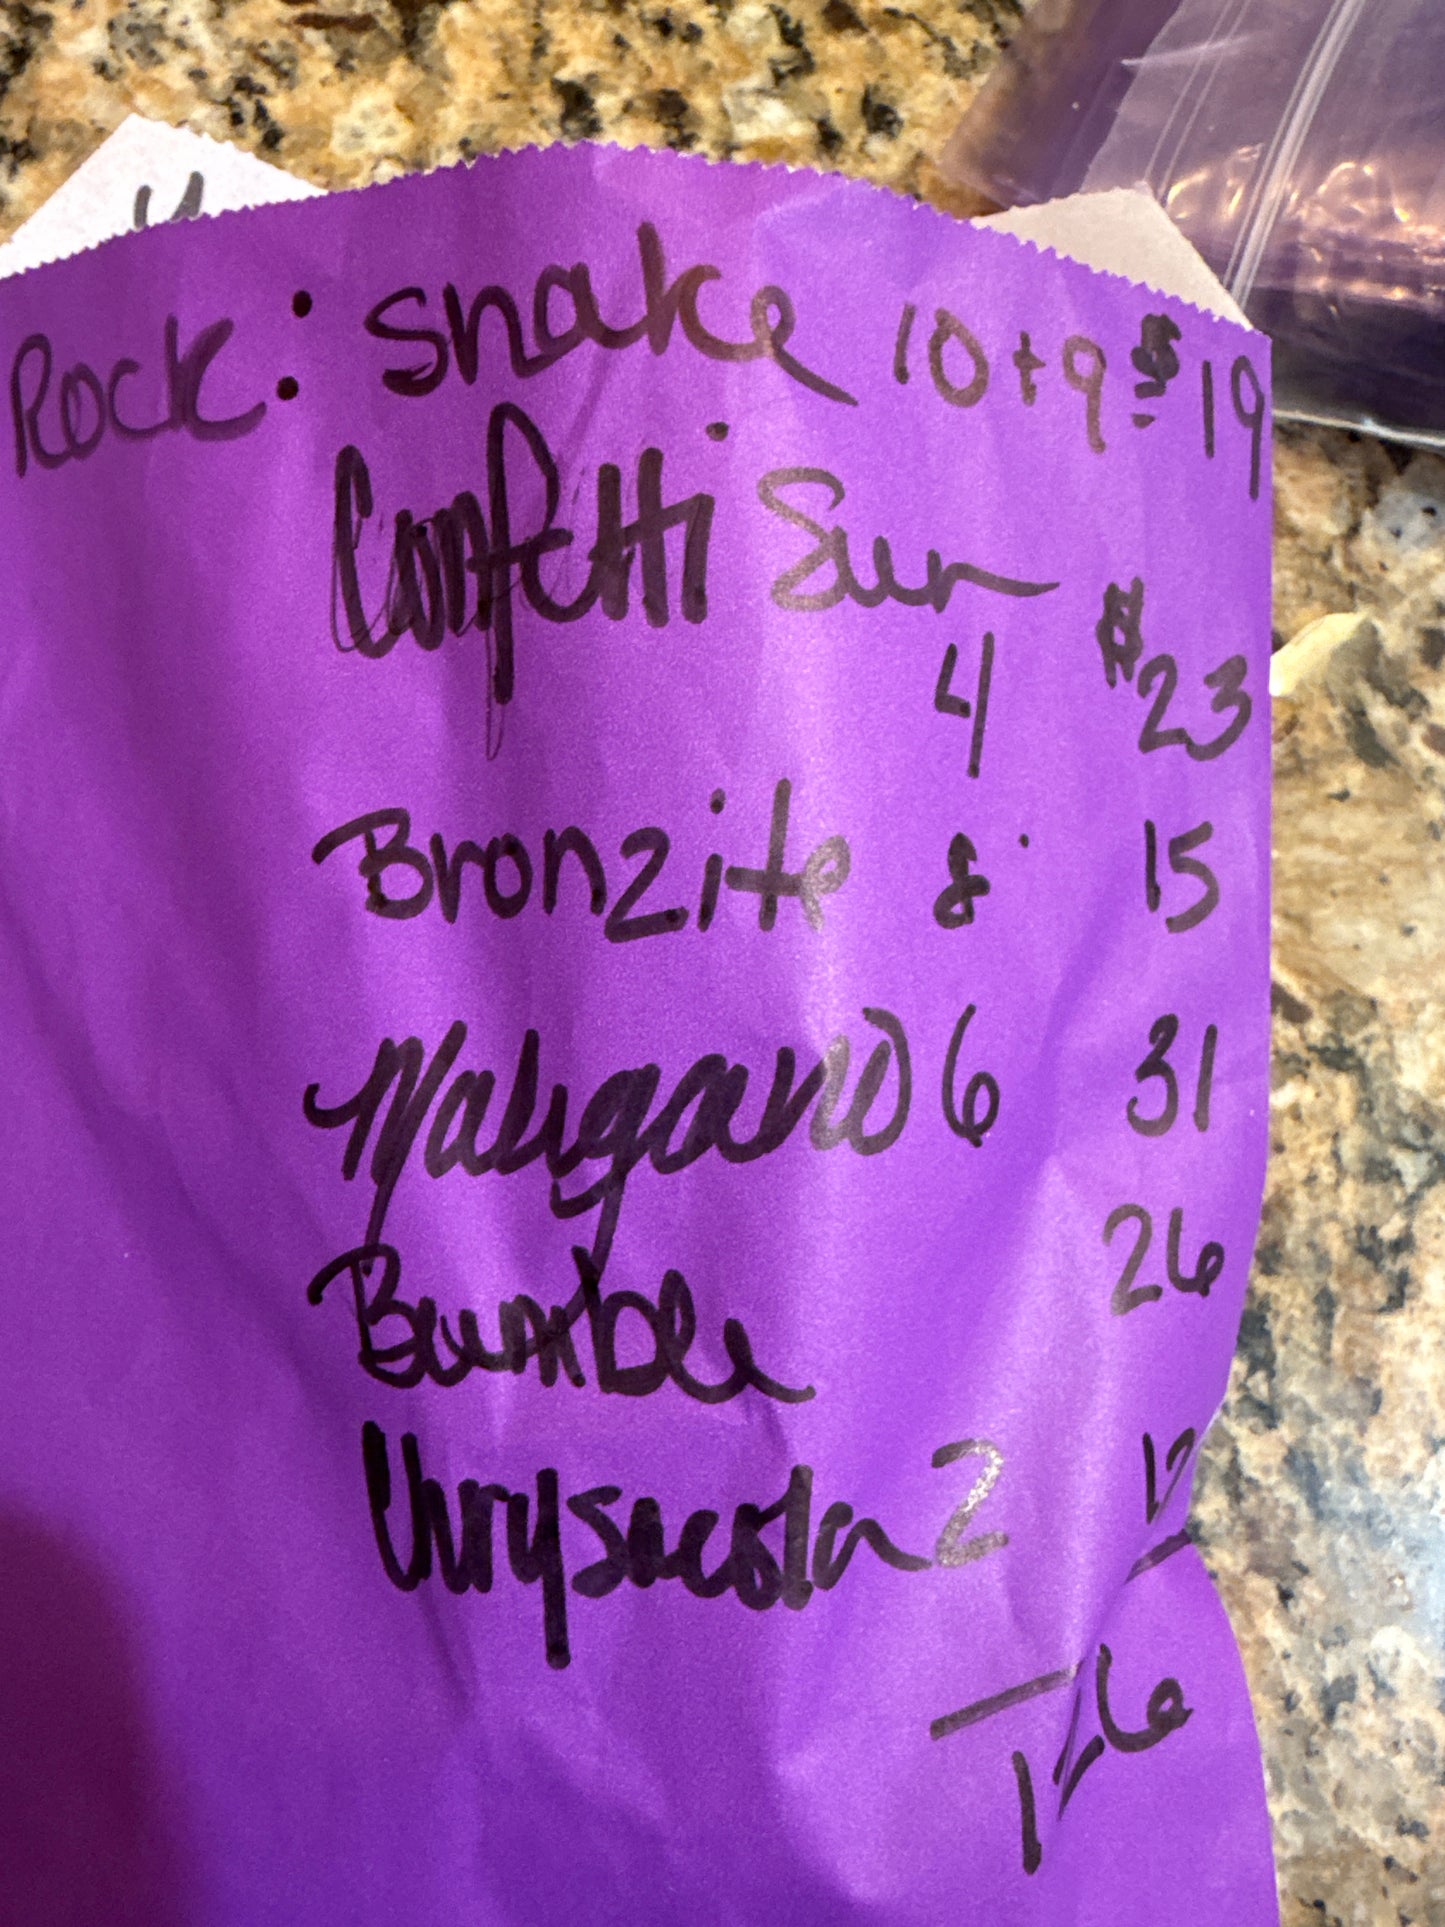 Rock: Snake 10+9 $19
Confetti Sun
4 $23
Bronzite 8 15
6 31
Bumble 26
Chrysocola 2 12
126